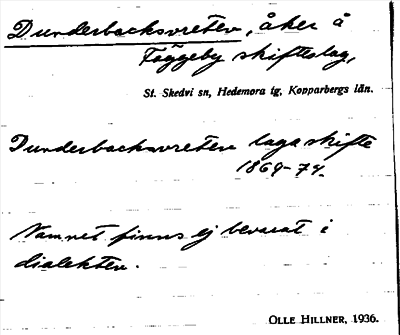 Dunderbacksvreten, åker å
Föggeby skifteslag,
St. Skedvi sn, Hedemora tg, Kopparbergs län.
Dunderbacksvreten laga skifte
1869-74.
Namnet finns ej bevarat i
dialekten.
OLLE HILLNER, 1936.